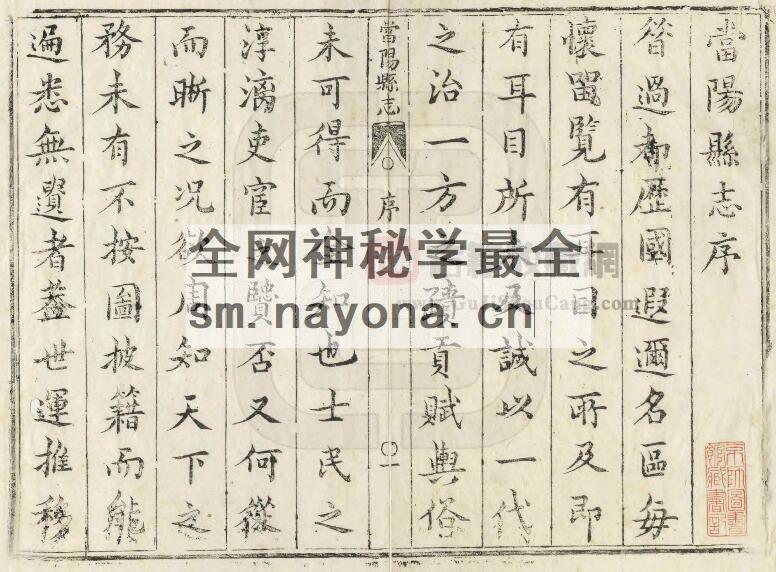 當陽縣志序
過都歴國遐邇名區毎
懷畱覽有耳目之所及即
有耳目所及誠以一代
之治一方貢賦輿俗
當陽縣志 序 一
未可得而知也士民之
淳漓吏宦賢否又何從
而晰之况欲周知天下之
務未有不按圖披籍而能
遍悉無遺者葢世運推移
全网神秘学最全
sm.nayona.cn